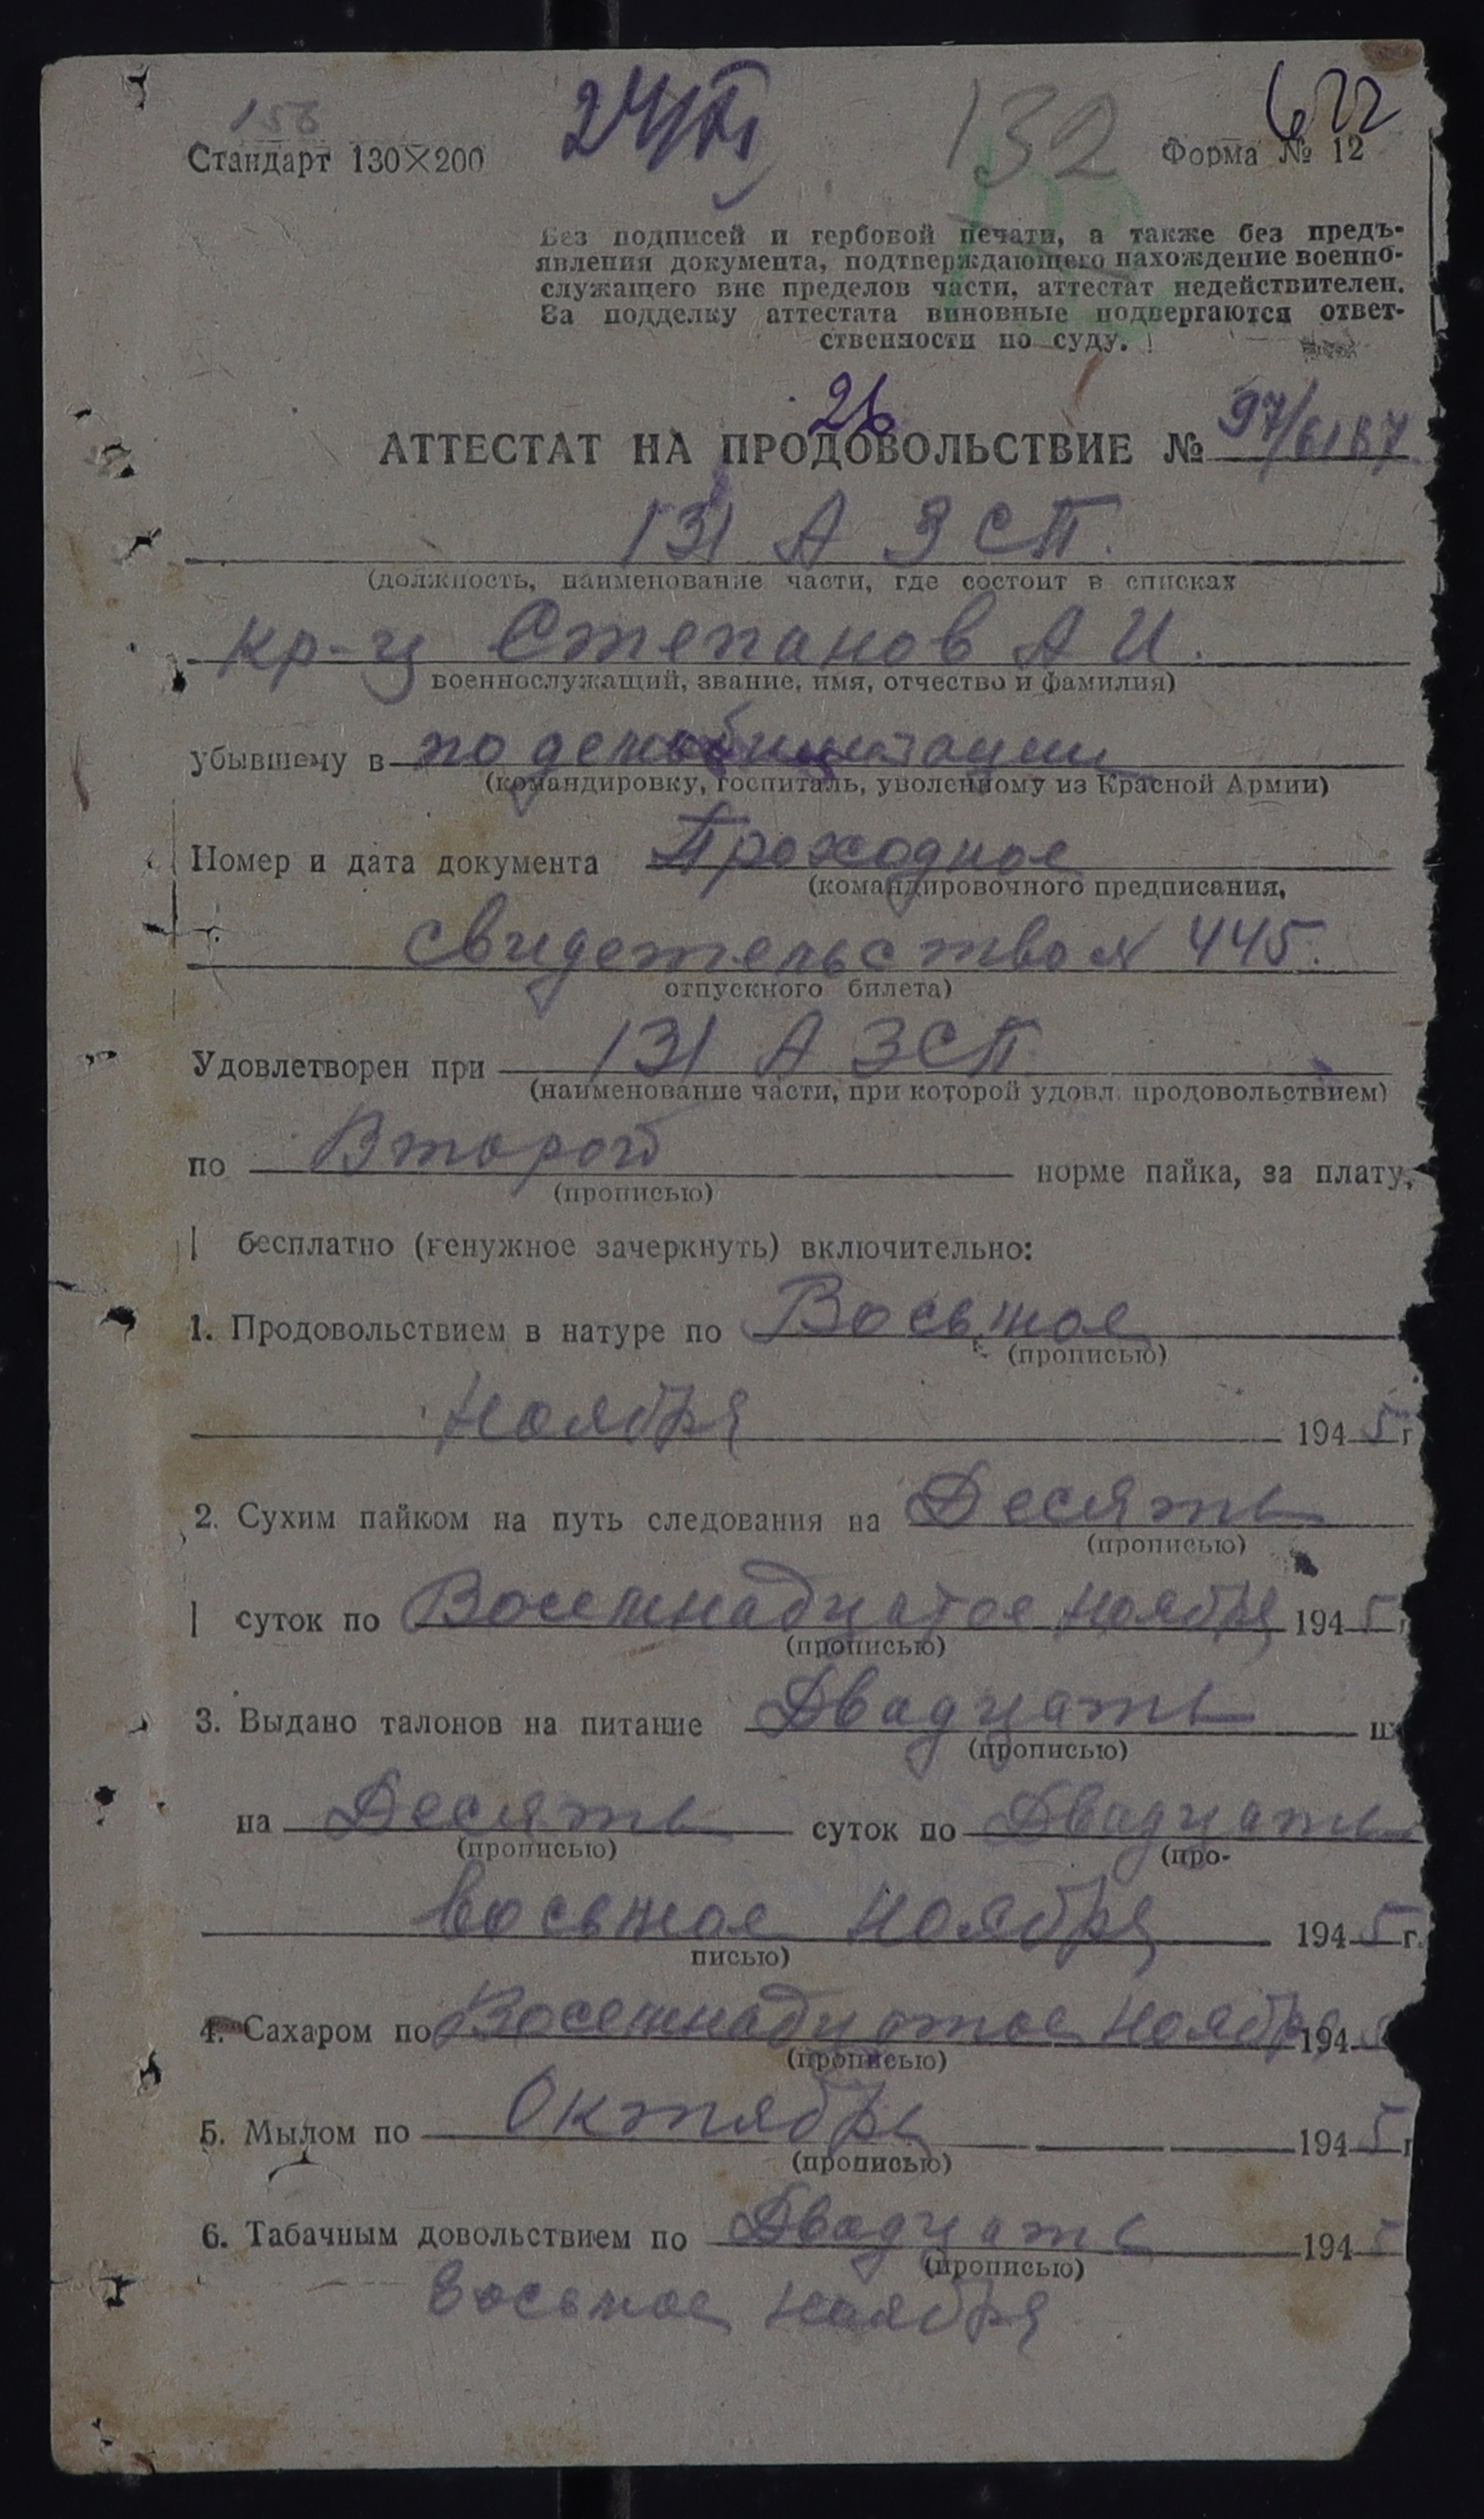 156
24/XI
132
622
Стандарт 130×200
Форма № 12
Без подписей и гербовой печати, а также без предъ-
явления документа, подтверждающего нахождение военно-
служащего вне пределов части, аттестат недействителен.
За подделку аттестата виновные подвергаются ответ-
ственности по суду.
26
АТТЕСТАТ НА ПРОДОВОЛЬСТВИЕ № 97/6187
131 А З СП.
(должность, наименование части, где состоит в списках
кр-ц Степанов А И.
военнослужащий, звание, имя, отчество и фамилия)
убывшему в по демобилизации
(командировку, госпиталь, уволенному из Красной Армии)
Номер и дата документа Проходное
(командировочного предписания,
свидетельство № 445.
отпускного билета)
Удовлетворен при 131 А ЗСП
(наименование части, при которой удовл. продовольствием)
по Второй норме пайка, за плату,
(прописью)
бесплатно (ненужное зачеркнуть) включительно:
1. Продовольствием в натуре по Восьмое
(прописью)
Ноября 1945 г
2. Сухим пайком на путь следования на Десять
(прописью)
суток по Восемнадцатое Ноября 1945 г
(прописью)
3. Выдано талонов на питание Двадцать
(прописью)
на Десять суток по Двадцать
(прописью) (про-
восьмое ноября 1945 г.
писью)
4. Сахаром по Восемнадцатое Ноября 194
(прописью)
5. Мылом по Октябрь 1945 г
(прописью)
6. Табачным довольствием по Двадцать 1945
(прописью)
восьмое ноября